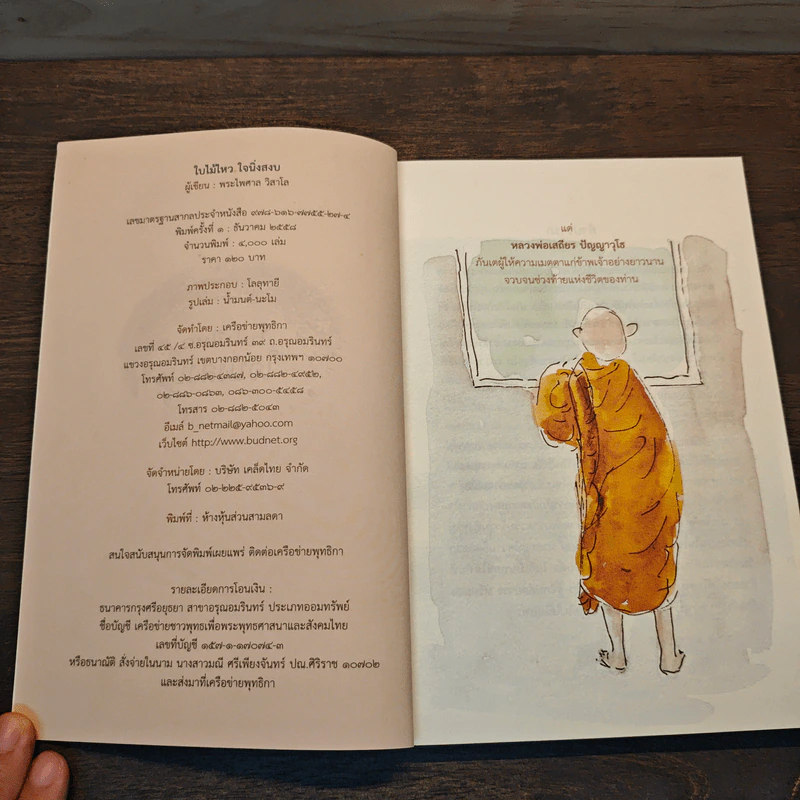 ใบไม้ไหว ใจนิ่งสงบ
ผู้เขียน : พระไพศาล วิสาโล
เลขมาตรฐานสากลประจำหนังสือ ๙๗๘-๖๑๖-๗๗๕๕-๒๗-๔
พิมพ์ครั้งที่ ๑ : ธันวาคม ๒๕๕๘
จำนวนพิมพ์ : ๔,๐๐๐ เล่ม
ราคา ๑๒๐ บาท
ภาพประกอบ : โลลุทายี
รูปเล่ม : น้ำมนต์-นะโม
จัดทำโดย : เครือข่ายพุทธิกา
เลขที่ ๔๕ /๔ ซ.อรุณอมรินทร์ ๓๙ ถ.อรุณอมรินทร์
แขวงอรุณอมรินทร์ เขตบางกอกน้อย กรุงเทพฯ ๑๐๗๐๐
โทรศัพท์ ๐๒-๘๘๒-๔๓๘๗, ๐๒-๘๘๒-๔๙๕๒,
๐๒-๘๘๖-๐๘๖๓, ๐๘๖-๓๐๐-๕๔๕๘
โทรสาร ๐๒-๘๘๒-๕๐๔๓
อีเมล์ b_netmail@yahoo.com
เว็บไซต์ http://www.budnet.org
จัดจำหน่ายโดย : บริษัท เคล็ดไทย จำกัด
โทรศัพท์ ๐๒-๒๒๕-๙๕๓๖-๙
พิมพ์ที่ : ห้างหุ้นส่วนสามลดา
สนใจสนับสนุนการจัดพิมพ์เผยแพร่ ติดต่อเครือข่ายพุทธิกา
รายละเอียดการโอนเงิน :
ธนาคารกรุงศรีอยุธยา สาขาอรุณอมรินทร์ ประเภทออมทรัพย์
ชื่อบัญชี เครือข่ายชาวพุทธเพื่อพระพุทธศาสนาและสังคมไทย
เลขที่บัญชี ๑๕๗-๑-๑๗๐๗๔-๓
หรือธนาณัติ สั่งจ่ายในนาม นางสาวมณี ศรีเพียงจันทร์ ปณ.ศิริราช ๑๐๗๐๒
และส่งมาที่เครือข่ายพุทธิกา
แด่
หลวงพ่อเสถียร ปัญญาวุโธ
ภันเตผู้ให้ความเมตตาแก่ข้าพเจ้าอย่างยาวนาน
จวบจนช่วงท้ายแห่งชีวิตของท่าน